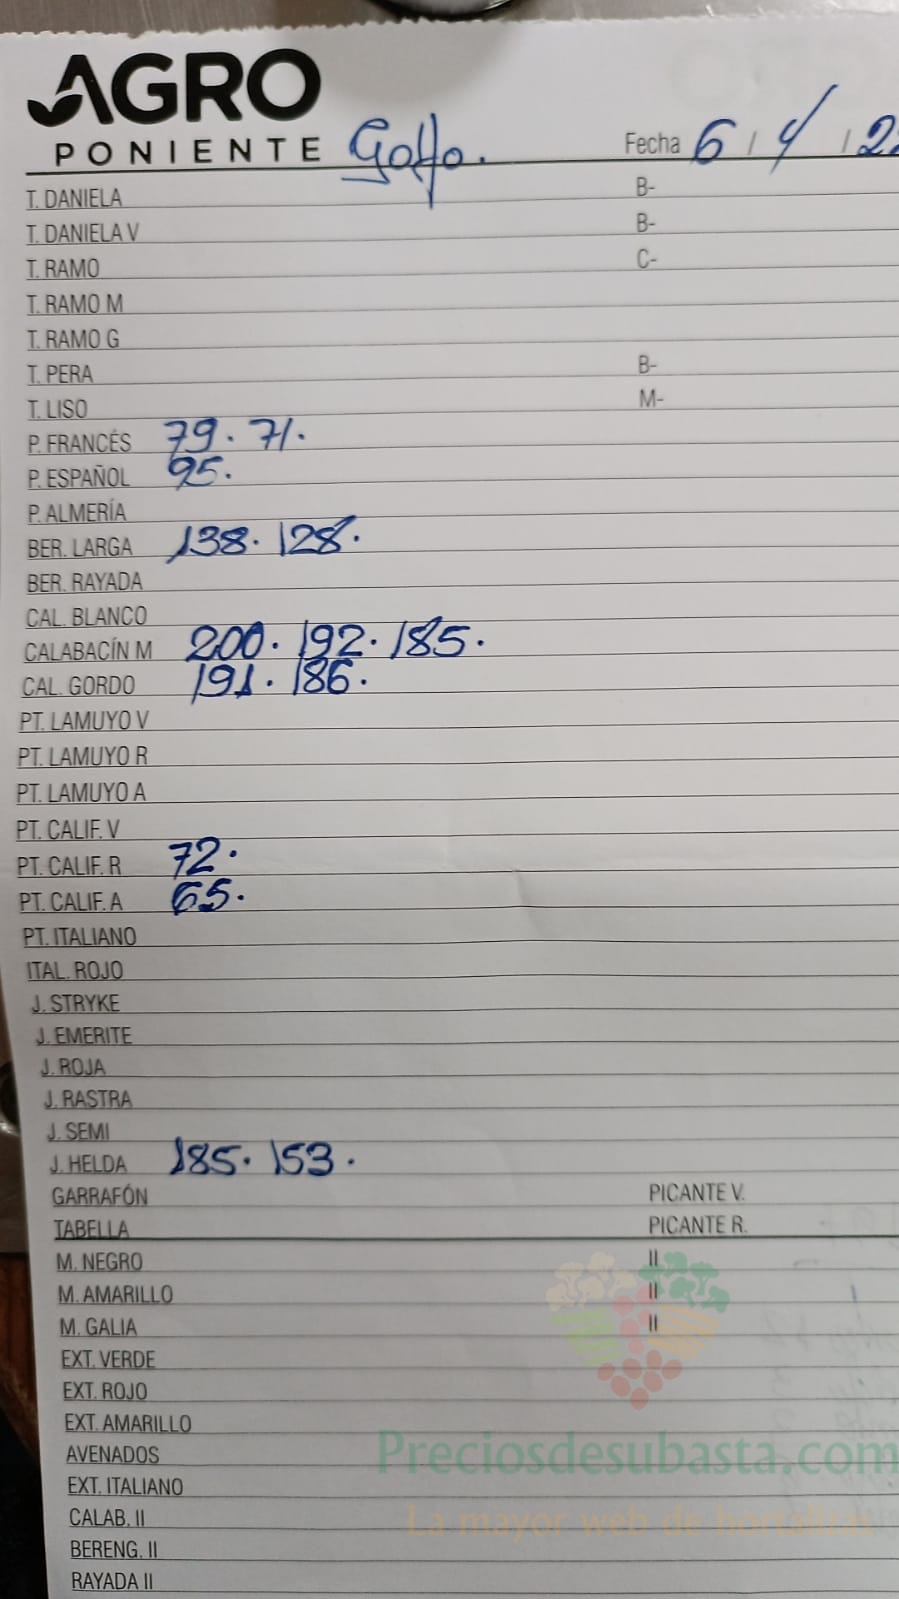 AGRO
PONIENTE Golfo. Fecha 6 / 4 / 2
T. DANIELA B-
T. DANIELA V B-
T. RAMO C-
T. RAMO M
T. RAMO G
T. PERA B-
T. LISO M-
P. FRANCÉS 79. 71.
P. ESPAÑOL 95.
P. ALMERÍA
BER. LARGA 138. 128.
BER. RAYADA
CAL. BLANCO
CALABACÍN M 200. 192. 185.
CAL. GORDO 191. 186.
PT. LAMUYO V
PT. LAMUYO R
PT. LAMUYO A
PT. CALIF. V
PT. CALIF. R 72.
PT. CALIF. A 65.
PT. ITALIANO
ITAL. ROJO
J. STRYKE
J. EMERITE
J. ROJA
J. RASTRA
J. SEMI
J. HELDA 185. 153.
GARRAFÓN PICANTE V.
TABELLA PICANTE R.
M. NEGRO II
M. AMARILLO II
M. GALIA II
EXT. VERDE
EXT. ROJO
EXT. AMARILLO
AVENADOS
Preciosdesubasta.com
EXT. ITALIANO
CALAB. II
La mayor web de hortalizas
BERENG. II
RAYADA II